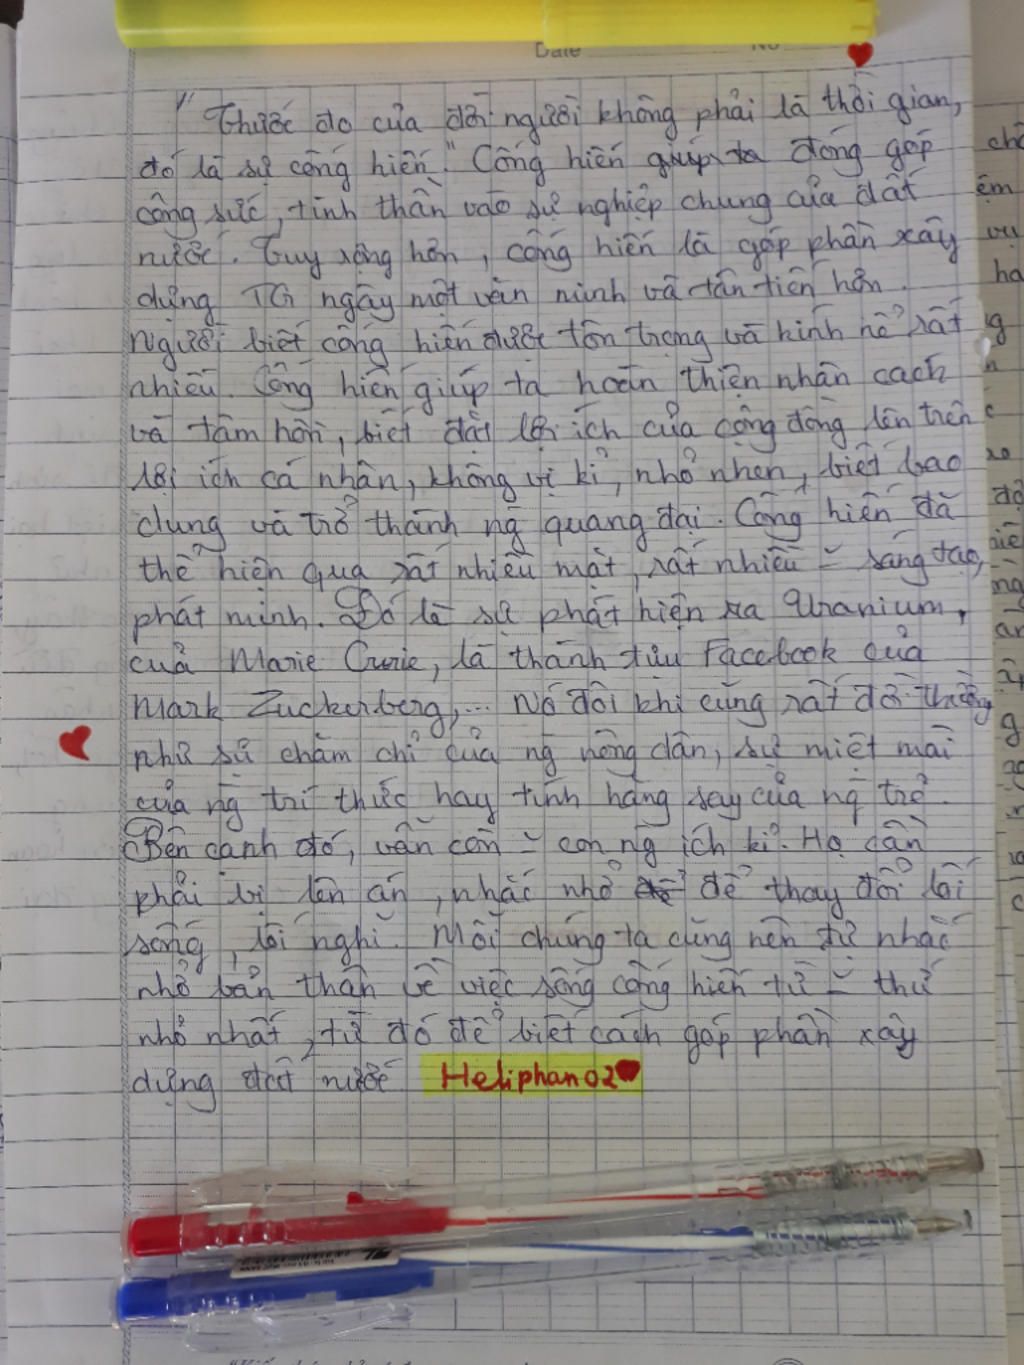 Date No
"Thước đo của đời người không phải là thời gian,
đó là sự cống hiến." Cống hiến giúp ta đóng góp
công sức, tinh thần vào sự nghiệp chung của đất
nước. Suy rộng hơn, cống hiến là góp phần xây
dựng TG ngày một văn minh và tân tiến hơn.
Người biết cống hiến được tôn trọng và kính nể rất
nhiều. Cống hiến giúp ta hoàn thiện nhân cách
và tâm hồn, biết đặt lợi ích của cộng đồng lên trên
lợi ích cá nhân, không vị kỉ, nhỏ nhen, biết bao
dung và trở thành ng quang đại. Cống hiến đã
thể hiện qua rất nhiều mặt, rất nhiều ~ sáng tạo,
phát minh. Đó là sự phát hiện ra Uranium,
của Marie Curie, là thành tựu Facebook của
Mark Zuckerberg,... Nó đôi khi cũng rất đời thường
như sự chăm chỉ của ng nông dân, sự miệt mài
của ng trí thức hay tính hăng say của ng trẻ.
Bên cạnh đó, vẫn còn ~ con ng ích kỉ. Họ cần
phải bị lên án, nhắc nhở để thay đổi lối
sống, lối nghĩ. Mỗi chúng ta cũng nên tự nhắc
nhở bản thân về việc sống cống hiến từ ~ thứ
nhỏ nhất, từ đó để biết cách góp phần xây
dựng đất nước. Heliphan02